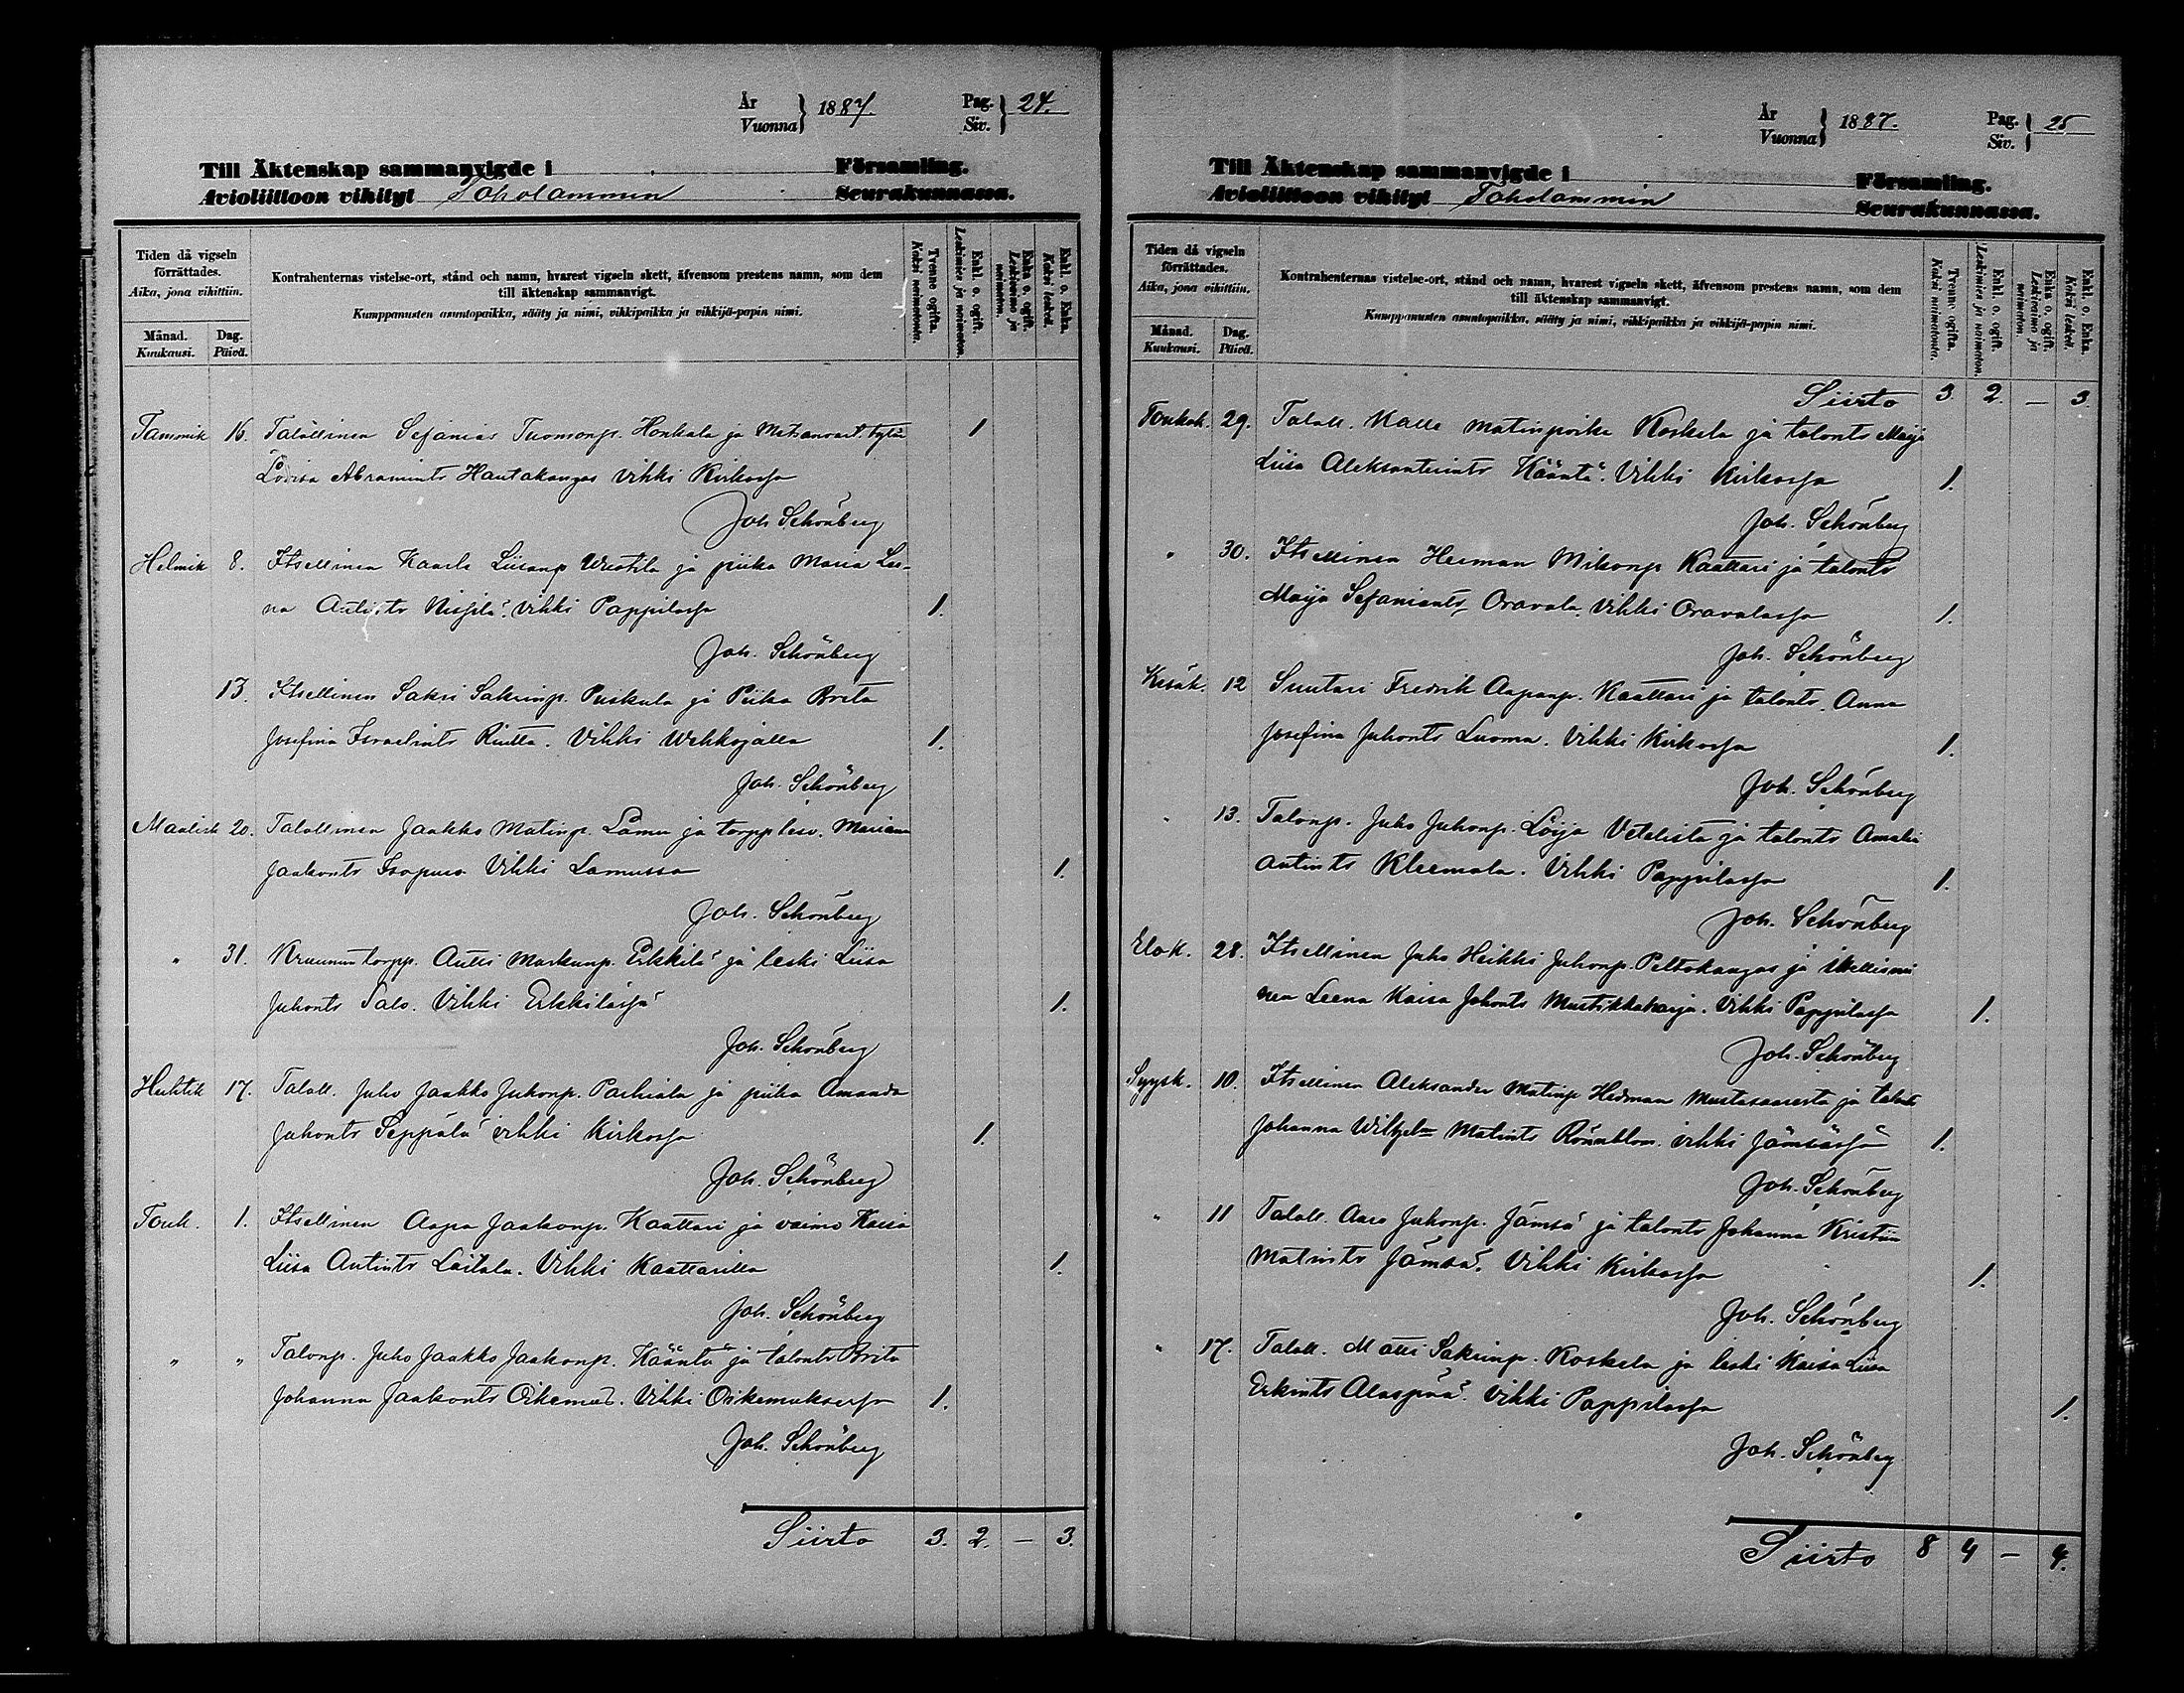 År
Vuonna } 1887.
Pag.
Siv. } 24.
Till Äktenskap sammanvigde i Församling.
Avioliittoon vihityt Toholammin Seurakunnassa.
Tiden då vigseln förrättades.
Aika, jona vihittiin.
Månad.
Kuukausi.
Dag.
Päivä.
Kontrahenternas vistelse-ort, stånd och namn, hvarest vigseln skett, äfvensom prestens namn, som dem
till äktenskap sammanvigt.
Kumppanusten asuntopaikka, sääty ja nimi, vihkipaikka ja vihkijä-papin nimi.
Tvenne ogifta.
Kaksi naimatonta.
Enkl. o. ogift.
Leskimies ja naimaton.
Enka o. ogift.
Leskivaimo ja naimaton.
Enkl. o. Enka.
Kaksi leskeä.
Tammik 16. Talollinen Sefanias Tuomonp. Honkala ja Metsänvart. tytär 1
Lovisa Abramints Hautakangas vihki Kirkossa
Joh Schönberg
Helmik 8. Itsellinen Kaarle Liisanp Uusitila ja piika Maria Lee-
na Antints Nissilä. vihki Pappilassa 1.
Joh. Schönberg
13. Itsellinen Sakri Sakrinp. Puskula ja Piika Brita
Josefina Israelints Riutta. Vihki Wehkojalla 1.
Joh. Schönberg
Maalisk 20. Talollinen Jaakko Matinp. Lamu ja torpp lesk. Mariana
Jaakonts Isopuro Vihki Lamussa 1.
Joh. Schönberg
" 31. Kruunun torpp. Antti Markunp. Erkkilä ja leski Liisa
Juhonts Salo. Vihki Erkkilässä 1.
Joh. Schönberg
Huhtik 17. Taloll. Juho Jaakko Juhonp. Parhiala ja piika Amanda
Juhonts Seppälä vihki Kirkossa 1.
Joh. Schönberg
Touk. 1. Itsellinen Aapa Jaakonp. Kaattari ja vaimo Kaisa
Liisa Antints Laitala. Vihki Kaattarilla 1.
Joh. Schönberg
" " Talonp. Juho Jaakko Jaakonp. Kääntä ja talonts Brita
Johanna Jaakonts Oikemus. Vihki Oikemuksessa 1.
Joh. Schönberg
Siirto 3. 2. — 3.
År
Vuonna } 1887.
Pag.
Siv. } 25
Till Äktenskap sammanvigde i Församling.
Avioliittoon vihityt Toholammin Seurakunnassa.
Tiden då vigseln förrättades.
Aika, jona vihittiin.
Månad.
Kuukausi.
Dag.
Päivä.
Kontrahenternas vistelse-ort, stånd och namn, hvarest vigseln skett, äfvensom prestens namn, som dem
till äktenskap sammanvigt.
Kumppanusten asuntopaikka, sääty ja nimi, vihkipaikka ja vihkijä-papin nimi.
Tvenne ogifta.
Kaksi naimatonta.
Enkl. o. ogift.
Leskimies ja naimaton.
Enka o. ogift.
Leskivaimo ja naimaton.
Enkl. o. Enka.
Kaksi leskeä.
Siirto 3 2. — 3.
Toukok. 29. Taloll. Kalle Matinpoika Koskela ja talonts Maija
Liisa Aleksanterints Kääntä. Vihki Kirkossa 1.
Joh. Schönberg
" 30. Itsellinen Herman Mikonp Kaattari ja talonts
Maija Sefaniants Oravala. Vihki Oravalassa 1.
Joh. Schönberg
Kesäk. 12 Suutari Fredrik Aapanp. Kaattari ja talonts. Anna
Josefina Juhonts Luoma. Vihki Kirkossa 1.
Joh. Schönberg
" 13. Talonp. Juho Juhonp. Löija Vetelistä ja talonts Amalia
Antints Kleemola. Vihki Pappilassa 1.
Joh. Schönberg
Elok. 28. Itsellinen Juho Heikki Juhonp. Peltokangas ja
nen Leena Kaisa Johonts Mustikkaharja. Vihki Pappilassa 1.
Joh. Schönberg
Syysk. 10. Itsellinen Aleksander Matinp Hedman Mustasaaresta ja talonts
Johanna Wilhelm Matints Rönnblom. vihki Jämsässä 1.
Joh. Schönberg
" 11 Taloll. Aaro Juhonp. Jämsä ja talonts Johanna Kristiin
Matints Jämsä. Vihki Kirkossa 1.
Joh. Schönberg
" 17. Taloll. Matti Sakrinp. Koskela ja leski Kaisa Liisa
Erkints Alaspää. Vihki Pappilassa 1.
Joh. Schönberg
Siirto 8 4 — 4.